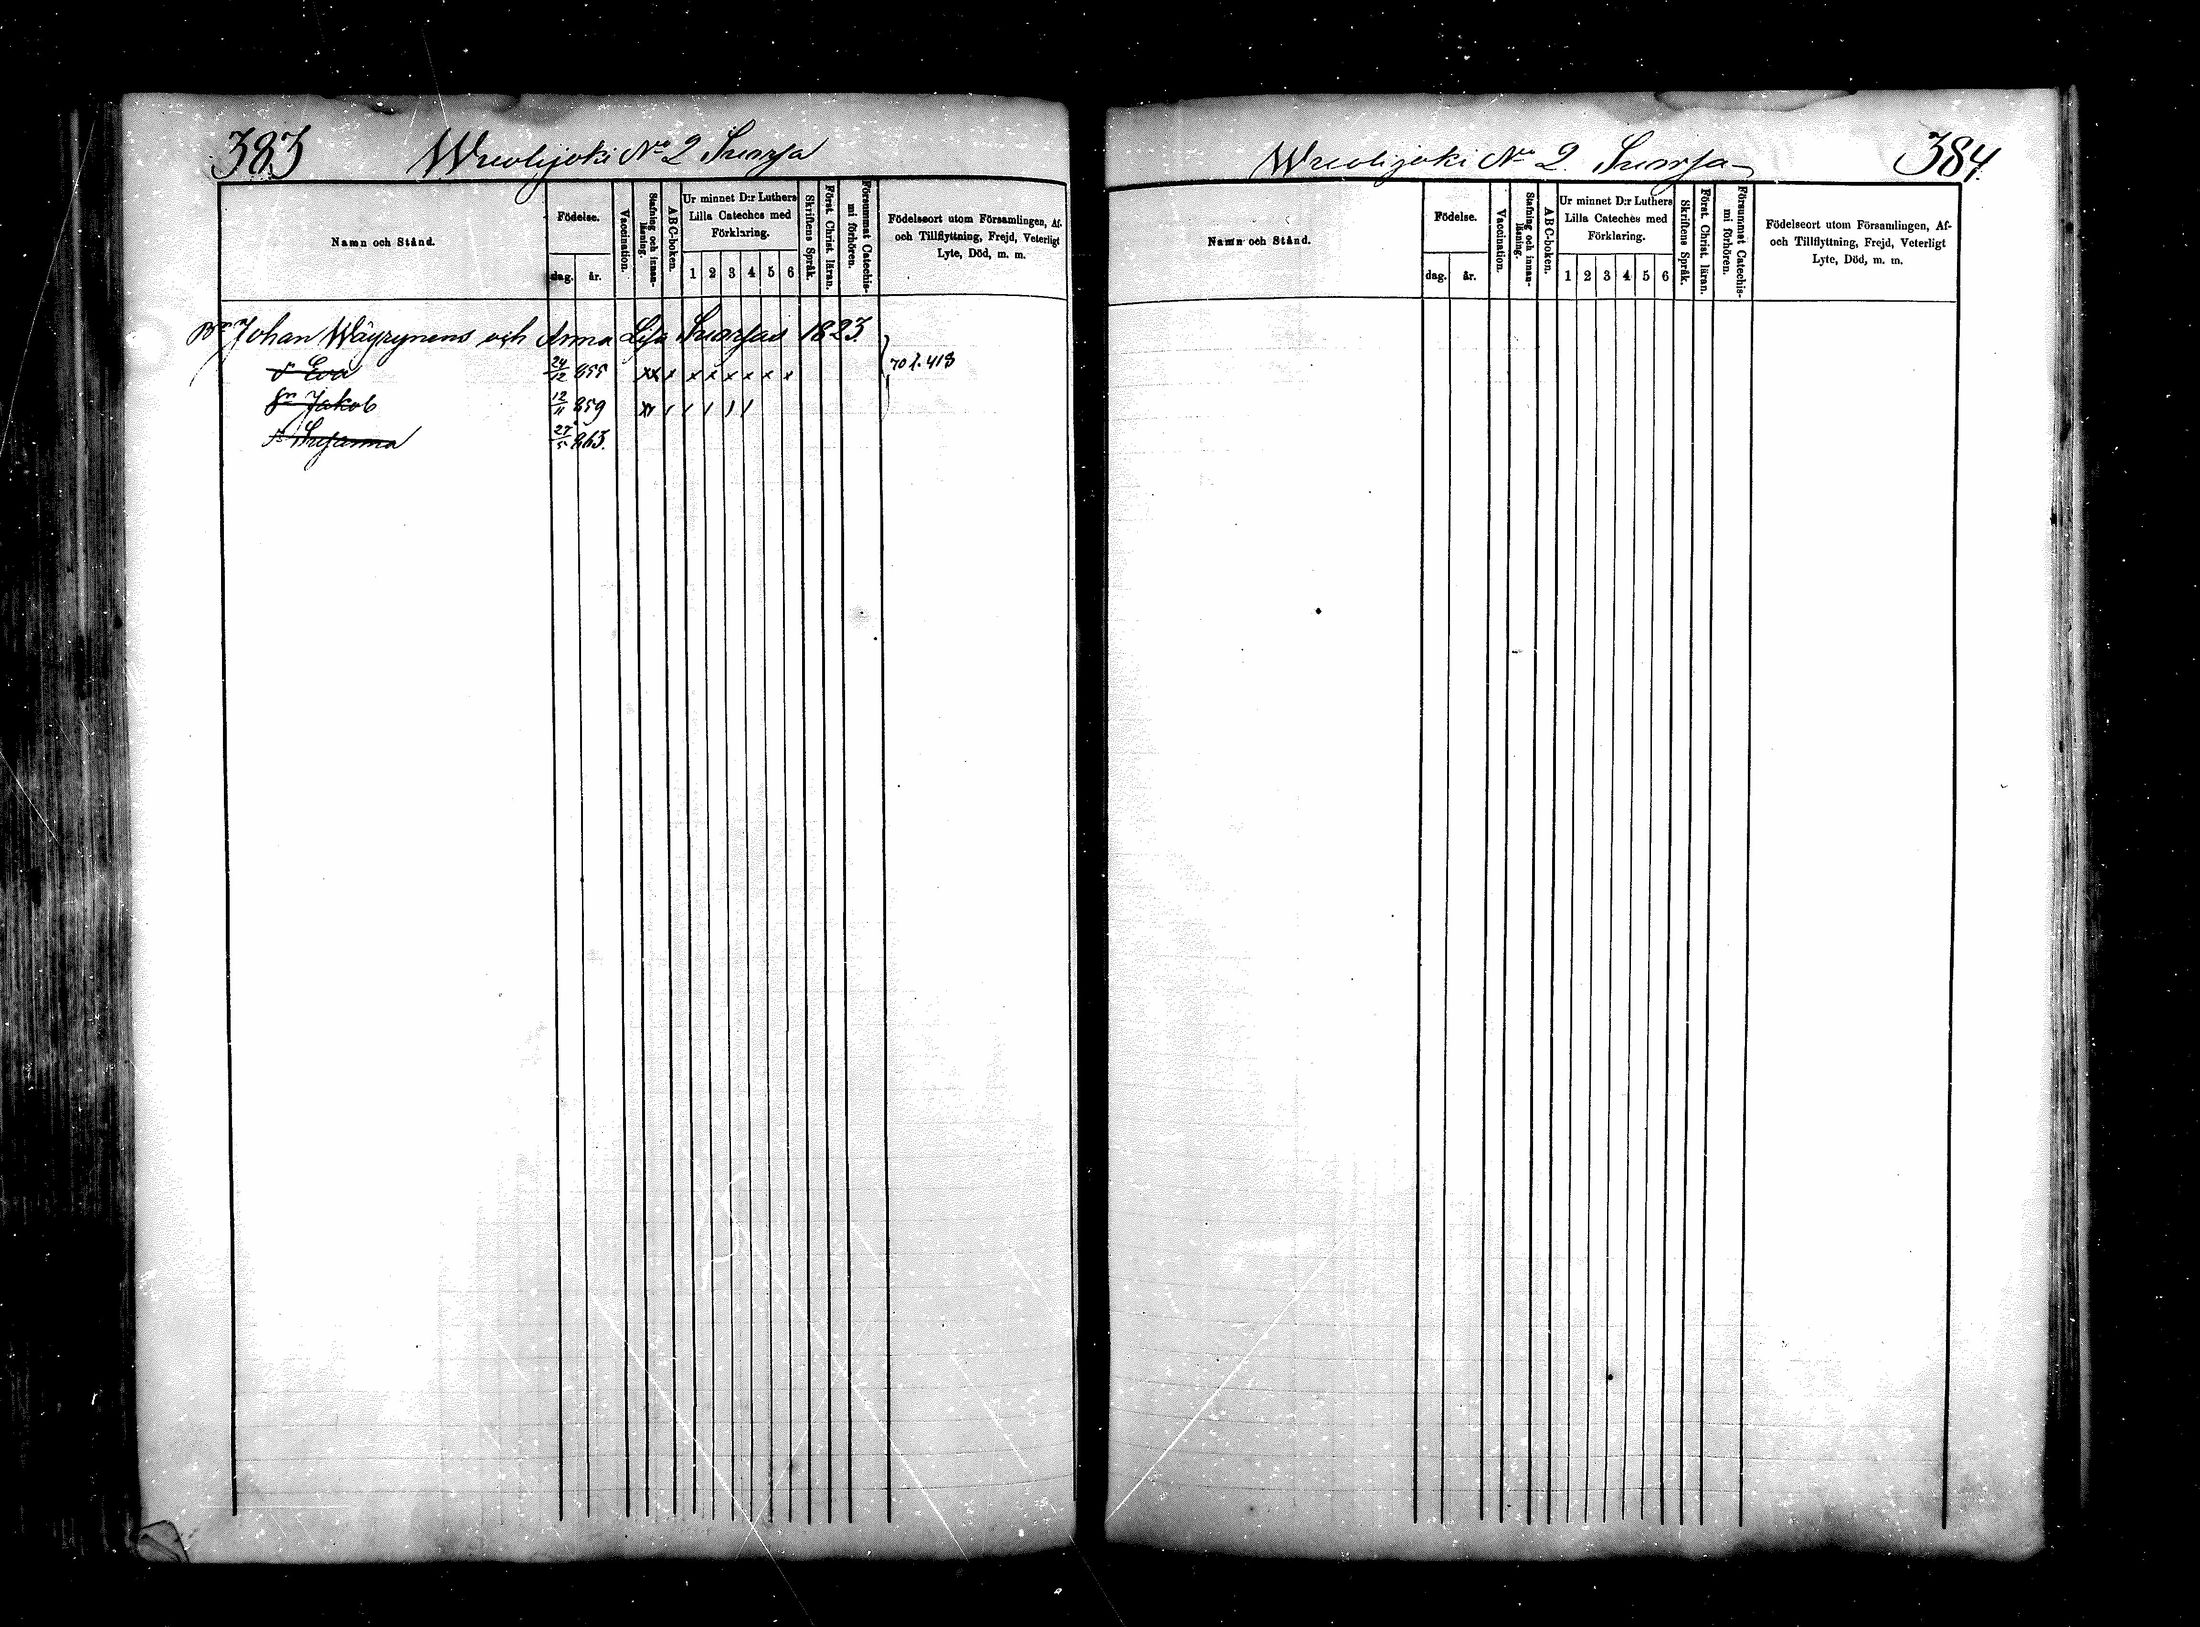 383
Wuolijoki No 2 Suorsa
Namn och Stånd.
Födelse.
dag.
år.
Vaccination.
Stafning och innan-
läsning.
A B C-boken.
Ur minnet D:r Luthers
Lilla Cateches med
Förklaring.
1 2 3 4 5 6
Skriftens Språk.
Först. Christ. läran.
Försummat Catechis-
mi förhören.
Födelseort utom Församlingen, Af-
och Tillflyttning, Frejd, Veterligt
Lyte, Död, m. m.
Johan Wäyrynens och Anna Lisa Suorsas 1823
Eva 24/12 855 xx x x x x x x x 70 p. 418
Sn Jakob 12/11 859
Susanna 27/5 863.
Wuolijoki No 2. Suorsa
384.
Namn och Stånd.
Födelse.
dag.
år.
Vaccination.
Stafning och innan-
läsning.
A B C-boken.
Ur minnet D:r Luthers
Lilla Cateches med
Förklaring.
1 2 3 4 5 6
Skriftens Språk.
Först. Christ. läran.
Försummat Catechis-
mi förhören.
Födelseort utom Församlingen, Af-
och Tillflyttning, Frejd, Veterligt
Lyte, Död, m. m.